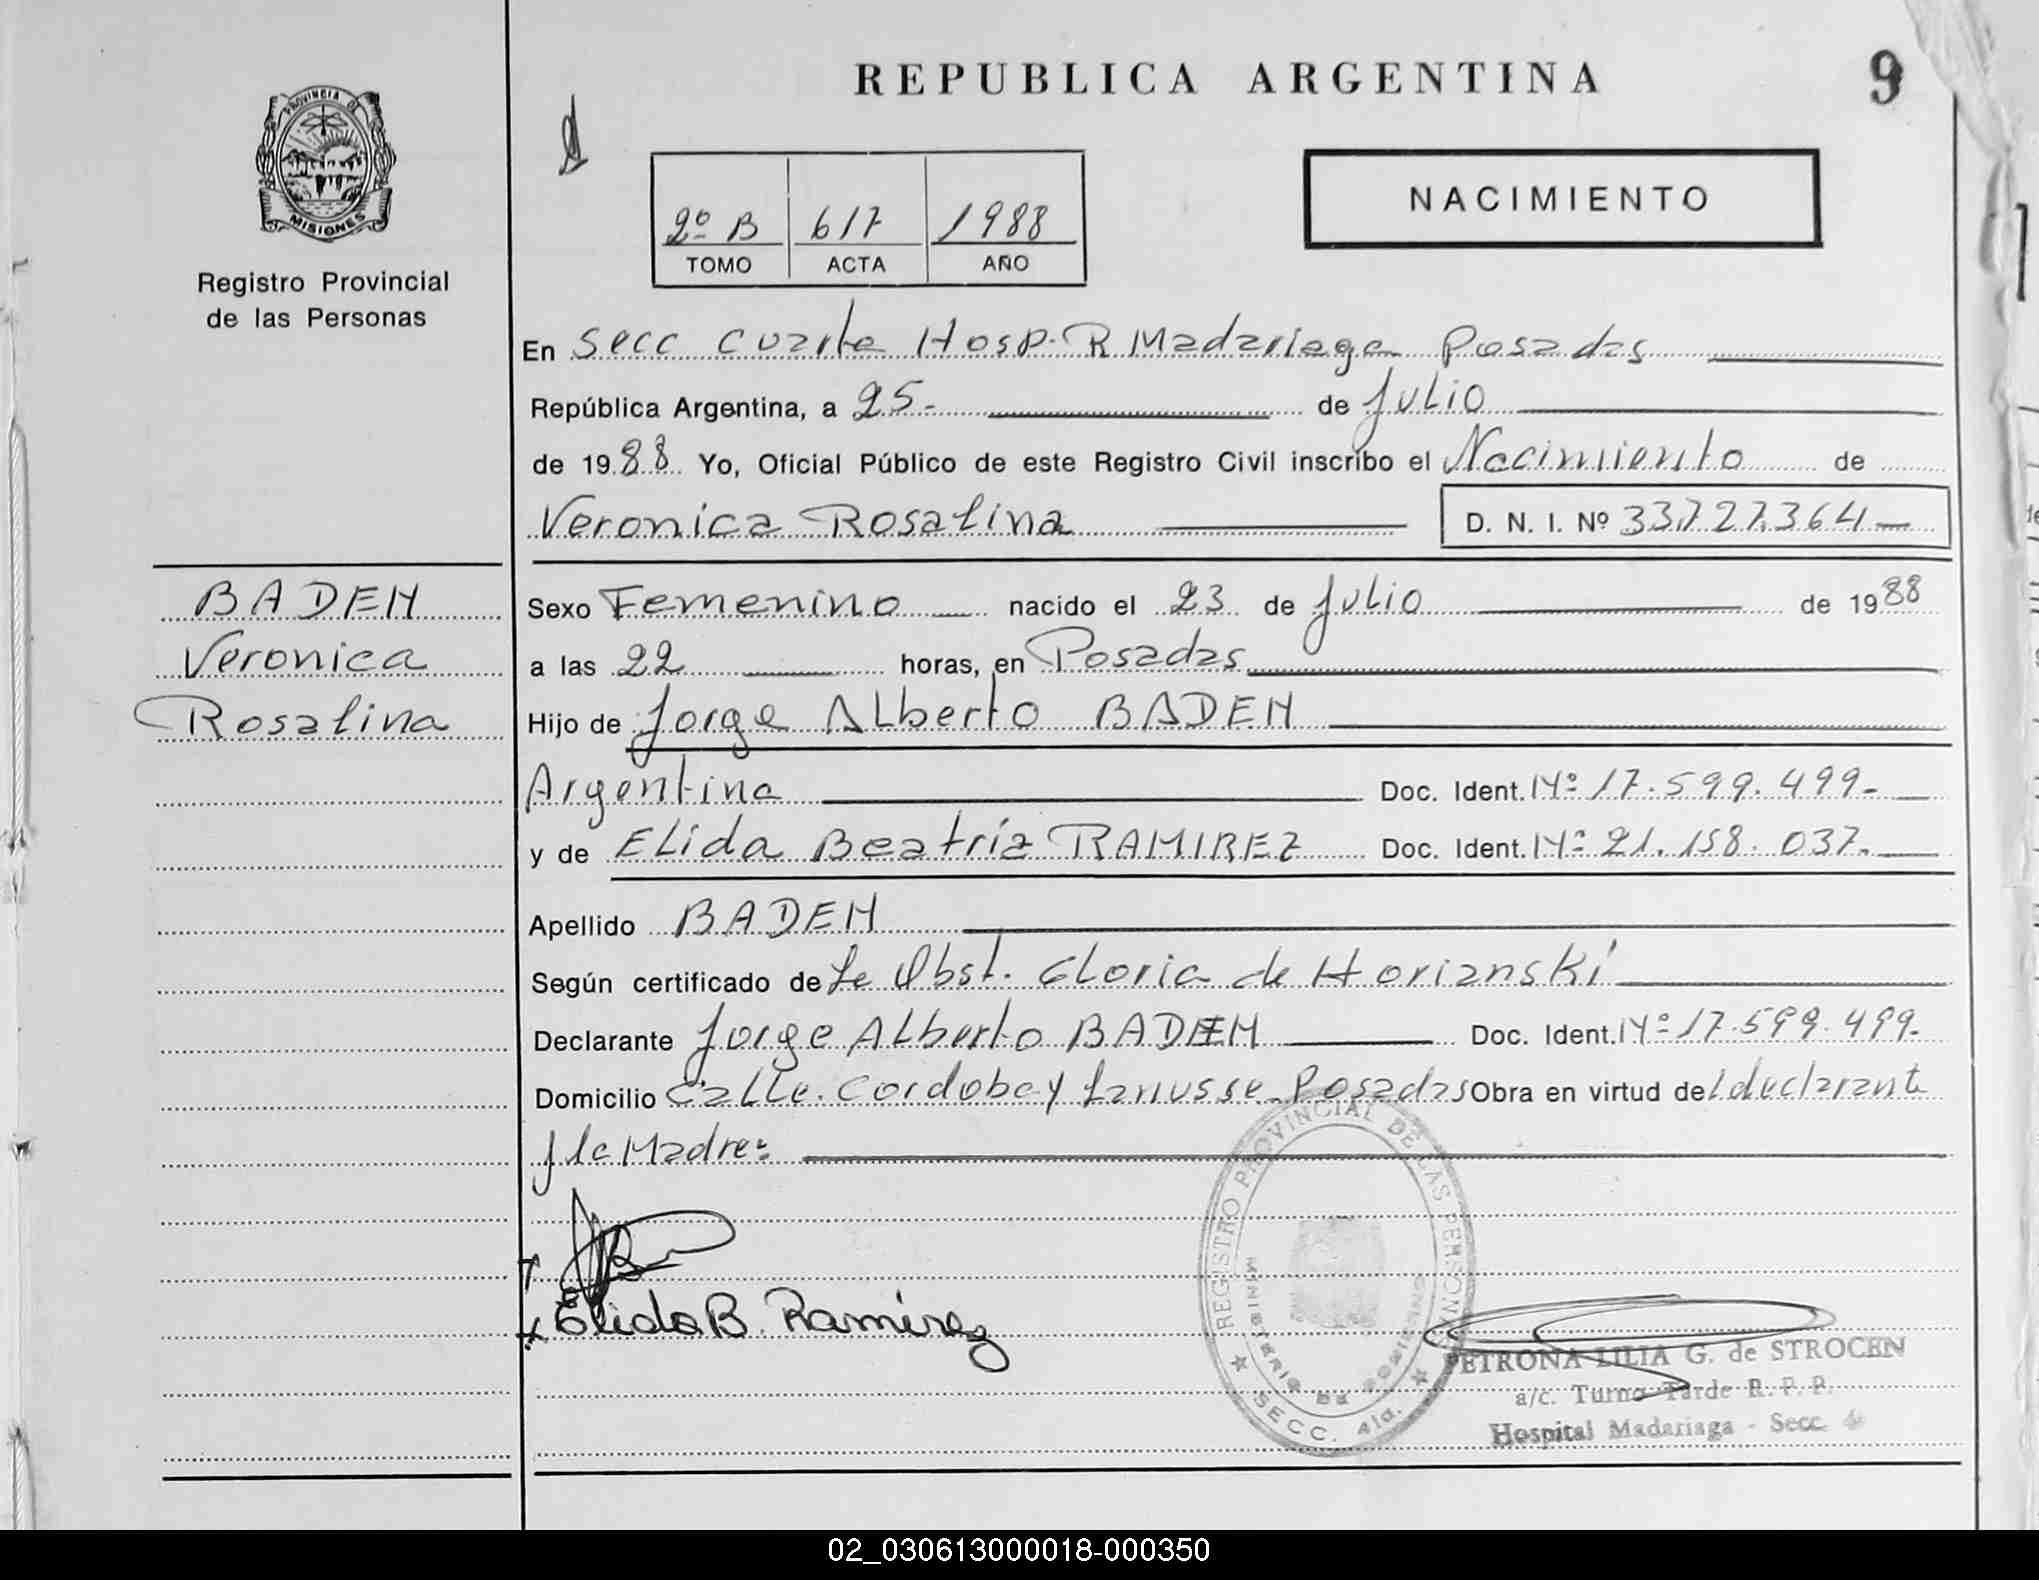 REPUBLICA ARGENTINA
9
PROVINCIA DE
MISIONES
Registro Provincial
de las Personas
2º B 617 1988
TOMO ACTA AÑO
NACIMIENTO
En Secc Cuarta Hosp. R Madariaga Posadas
República Argentina, a 25- de Julio
de 1988 Yo, Oficial Público de este Registro Civil inscribo el Nacimiento de
Veronica Rosalina D. N. I. Nº 33.727.364
BADEN
Veronica
Rosalina
Sexo Femenino nacido el 23 de Julio de 1988
a las 22 horas, en Posadas
Hijo de Jorge Alberto BADEN
Argentina Doc. Ident. Nº 17.599.499-
y de Elida Beatriz RAMIREZ Doc. Ident. Nº 21.158.037.
Apellido BADEN
Según certificado de La Obst. Gloria de Horianski
Declarante Jorge Alberto BADEN Doc. Ident. Nº 17.599.499-
Domicilio Calle Cordoba y Lanusse Posadas Obra en virtud del declarante
y la Madre:
Elida B. Ramirez
REGISTRO PROVINCIAL DE LAS PERSONAS
MINISTERIO DE GOBIERNO
SECC. 4ta.
PETRONA LILIA G. de STROCEN
a/c. Turno Tarde R. P. P.
Hospital Madariaga - Secc. 4
02_030613000018-000350